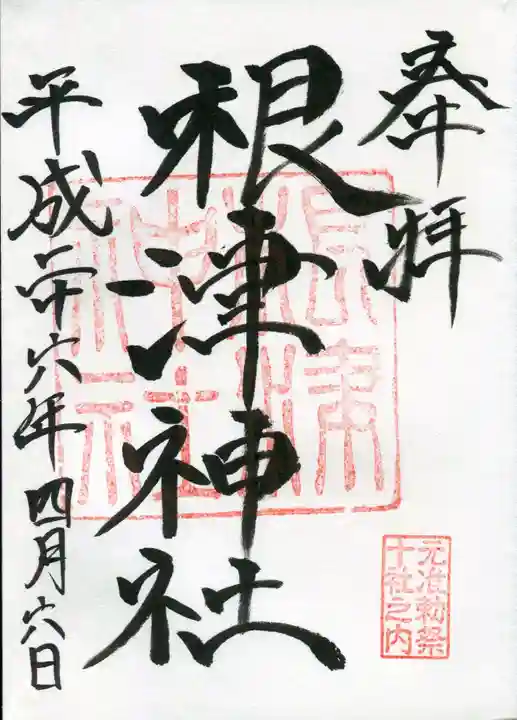 奉拝
根津神社
平成二十六年四月六日
元准勅祭
十社之内